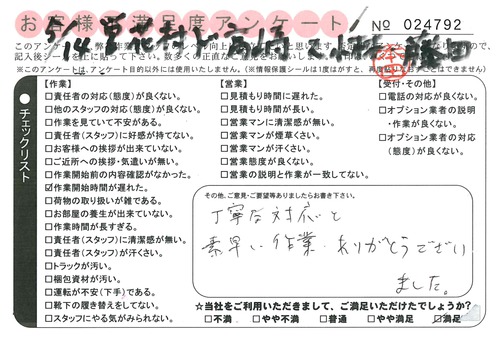 お客様満足度アンケート
No 024792
※このアンケートは、アンケート目的以外には使用いたしません。(※情報保護シールは1度はがすと、再度貼ることはできません)
チェックリスト
【作業】
□責任者の対応(態度)が良くない。
□他のスタッフの対応(態度)が良くない。
□作業を見ていて不安がある。
□責任者(スタッフ)に好感が持てない。
□お客様への挨拶が出来ていない。
□ご近所への挨拶・気遣いが無い。
□作業開始前の内容確認がなかった。
☑作業開始時間が遅れた。
□荷物の取り扱いが雑である。
□お部屋の養生が出来ていない。
□作業時間が長すぎる。
□責任者(スタッフ)に清潔感が無い。
□責任者(スタッフ)が汗くさい。
□トラックが汚い。
□梱包資材が汚い。
□運転が不安(下手)である。
□靴下の履き替えをしてない。
□スタッフにやる気がみられない。
【営業】
□見積もり時間に遅れた。
□見積もり時間が長い。
□営業マンに清潔感が無い。
□営業マンが煙草くさい。
□営業マンが汗くさい。
□営業態度が良くない。
□営業の説明と作業が一致してない。
【受付・その他】
□電話の対応が良くない。
□オプション業者の説明・作業が良くない。
□オプション業者の対応(態度)が良くない。
その他、ご意見・ご要望等ありましたらお書き下さい。
丁寧な対応と
素早い作業、ありがとうござい
ました。
☆当社をご利用いただきまして、ご満足いただけたでしょうか?
□不満 □やや不満 □普通 □やや満足 ☑満足